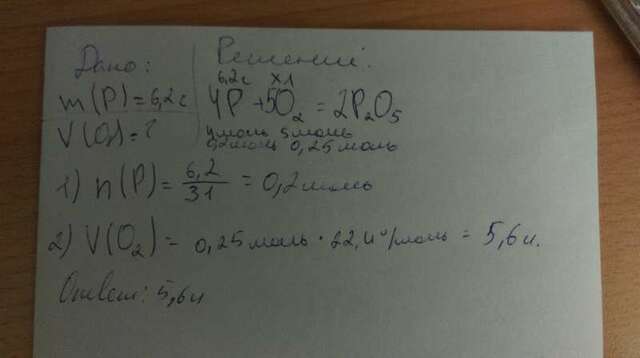 Дано:
m(P)=6,2г
V(O₂)=?
Решение:
6,2г x1
4P+5O₂=2P₂O₅
4моль 5моль
0,2моль 0,25моль
1) n(P)= 6,2/31 =0,2моль
2) V(O₂)= 0,25моль·22,4л/моль = 5,6л.
Ответ: 5,6л